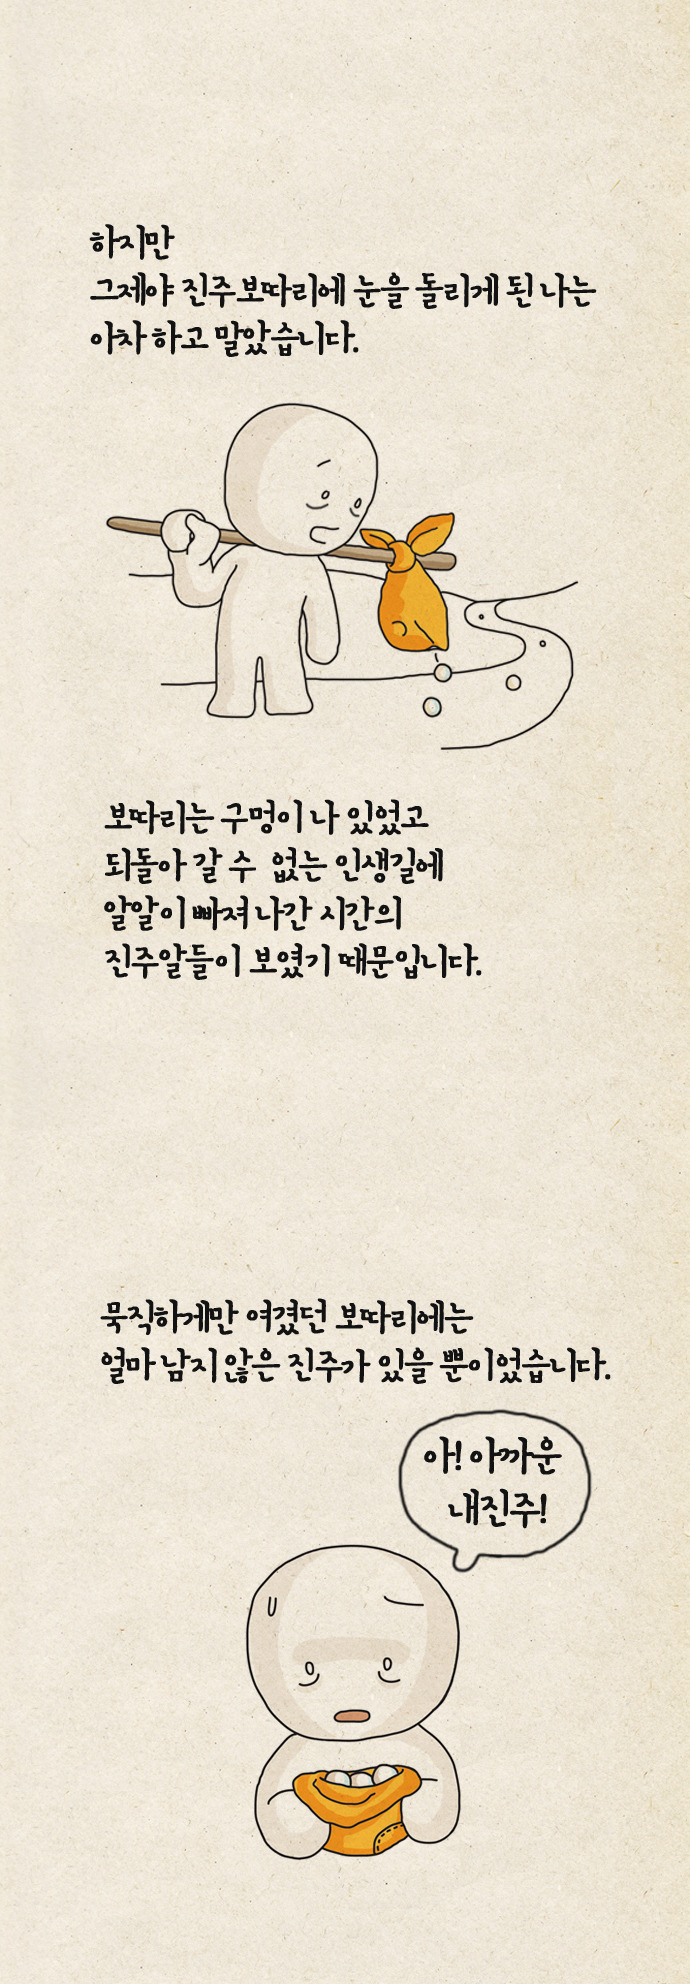 하지만
그제야 진주보따리에 눈을 돌리게 된 나는
아차 하고 말았습니다.
보따리는 구멍이 나 있었고
되돌아 갈 수 없는 인생길에
알알이 빠져 나간 시간의
진주알들이 보였기 때문입니다.
묵직하게만 여겼던 보따리에는
얼마 남지 않은 진주가 있을 뿐이었습니다.
아! 아까운
내진주!